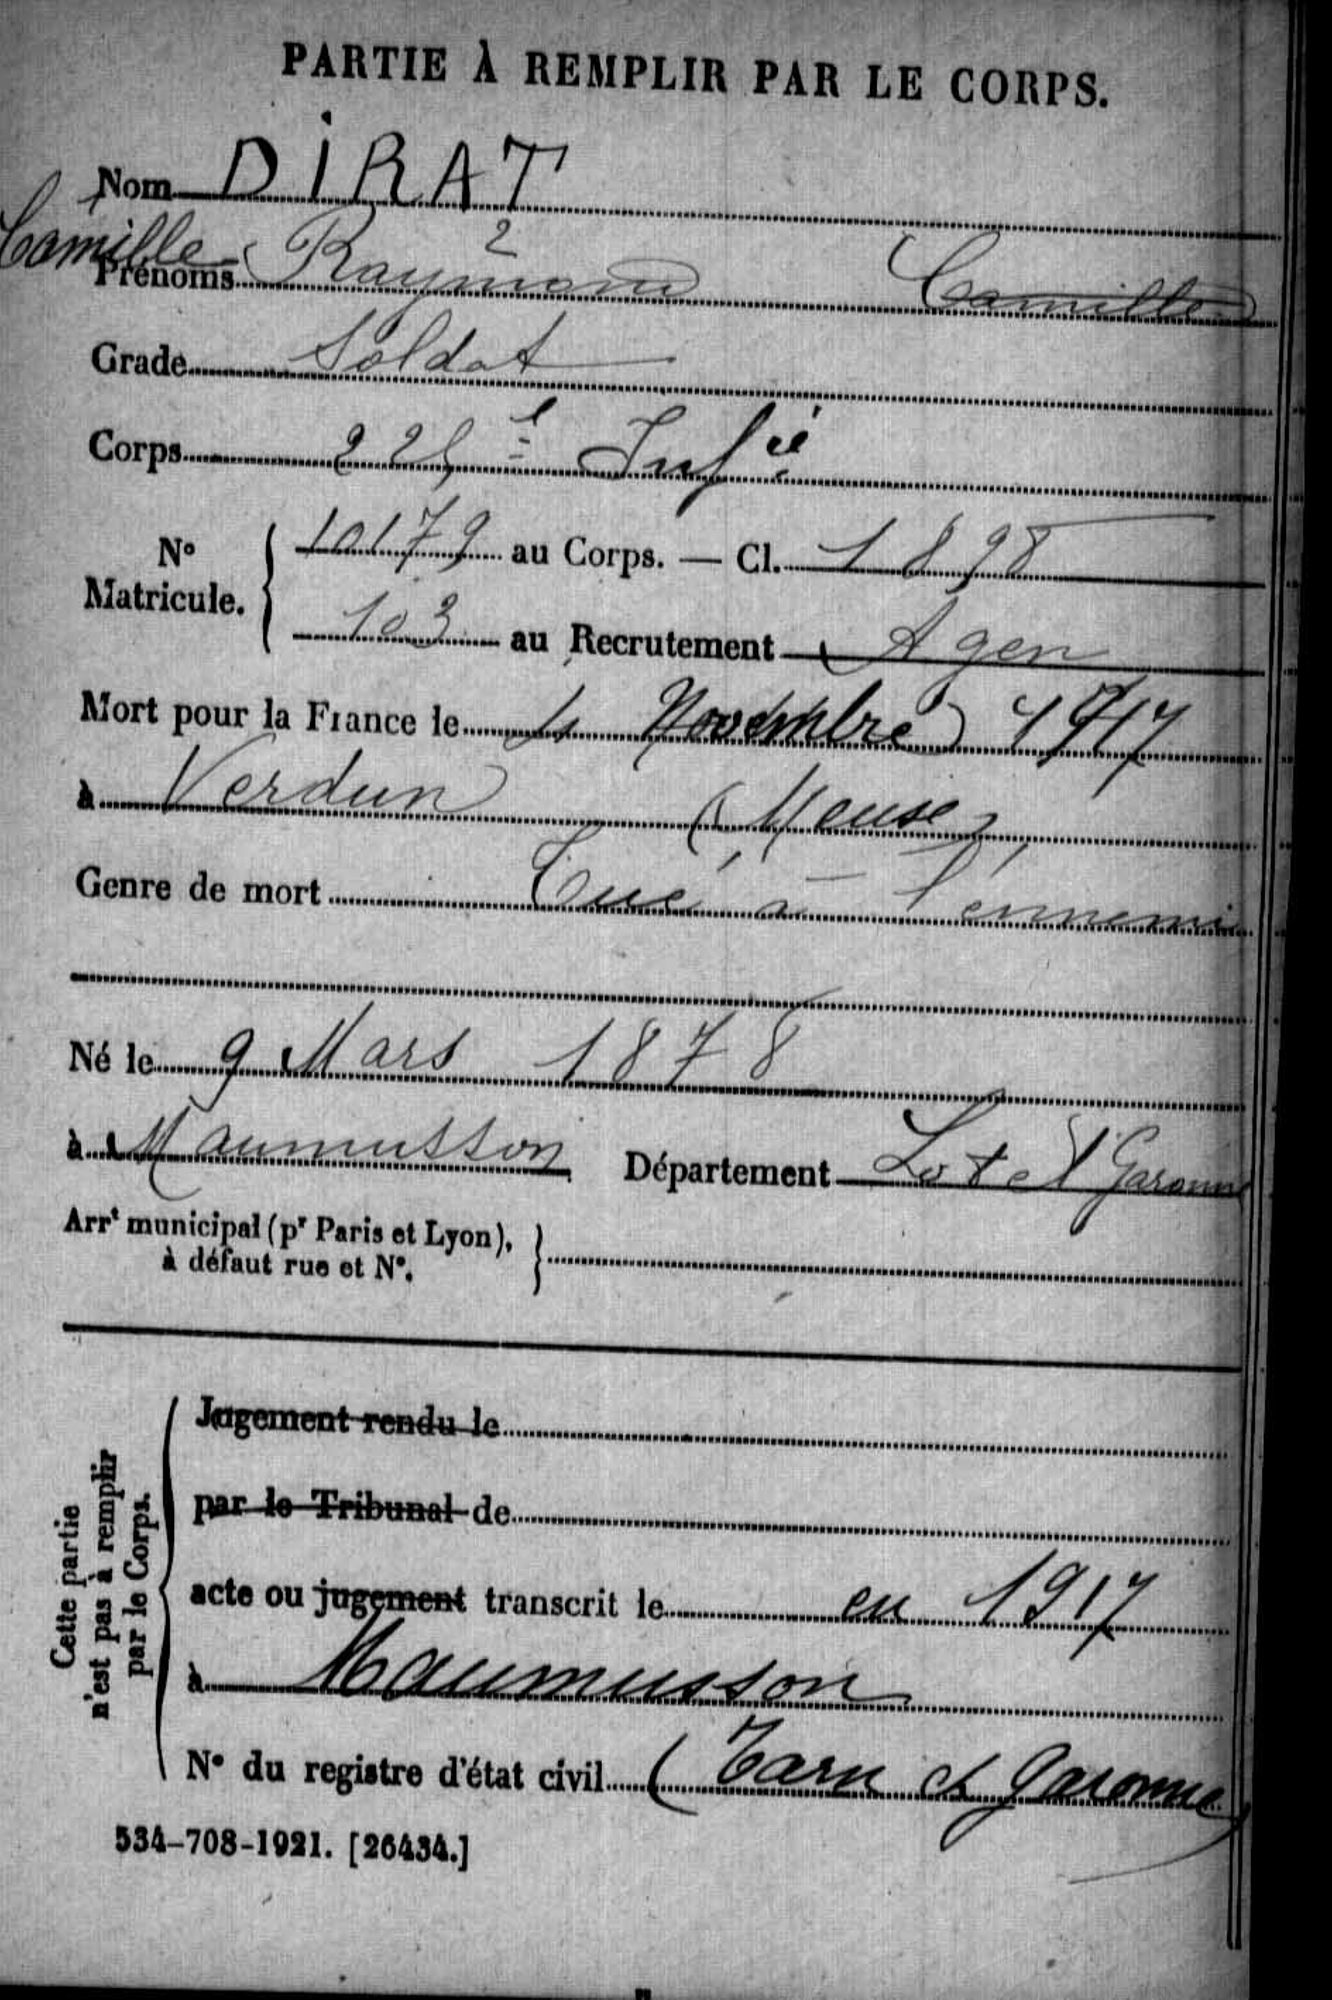 PARTIE À REMPLIR PAR LE CORPS.
Nom DIRAT
Camille
Prénoms Raymond 2 Camille
Grade Soldat
Corps 225e Infie
No Matricule. 10179 au Corps. — Cl. 1898
103 au Recrutement Agen
Mort pour la France le 4 Novembre 1917
à Verdun (Meuse)
Genre de mort Tué à l'ennemi
Né le 9 Mars 1878
à Maumusson Département Lot et Garonne
Arrt municipal (pr Paris et Lyon),
à défaut rue et No.
Cette partie
n'est pas à remplir
par le Corps.
Jugement rendu le
par le Tribunal de
acte ou jugement transcrit le en 1917
à Maumusson
No du registre d'état civil (Tarn et Garonne)
534-708-1921. [26434.]